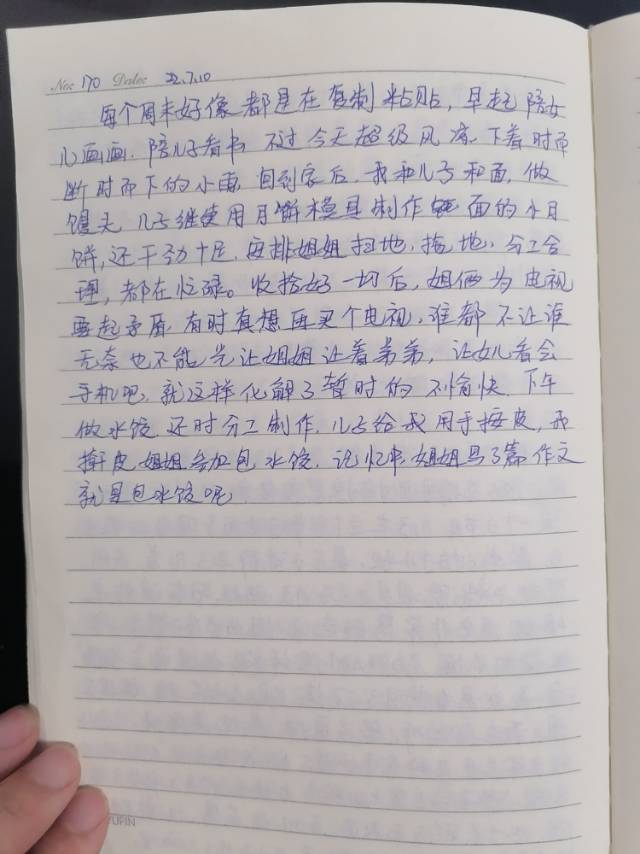 No: 170 Date: 22.7.10
每个周末好像都是在复制粘贴，早起陪女
儿画画，陪儿子看书 不过今天超级风凉，下着时而
断时而下的小雨，回到家后，我和儿子和面，做
馒头 儿子继续使用月饼模具制作 面的小月
饼，还干劲十足，安排姐姐扫地，拖地，分工合
理，都在忙碌。收拾好一切后，姐俩为电视
要起矛盾，有时真想再买个电视，谁都不让谁
无奈也不能光让姐姐让着弟弟，让女儿看会
手机吧，就这样化解了暂时的不愉快，下午
做水饺，还时分工制作，儿子给我用手按皮，我
擀皮，姐姐参加包水饺，记忆中姐姐写了篇作文
就是包水饺呢